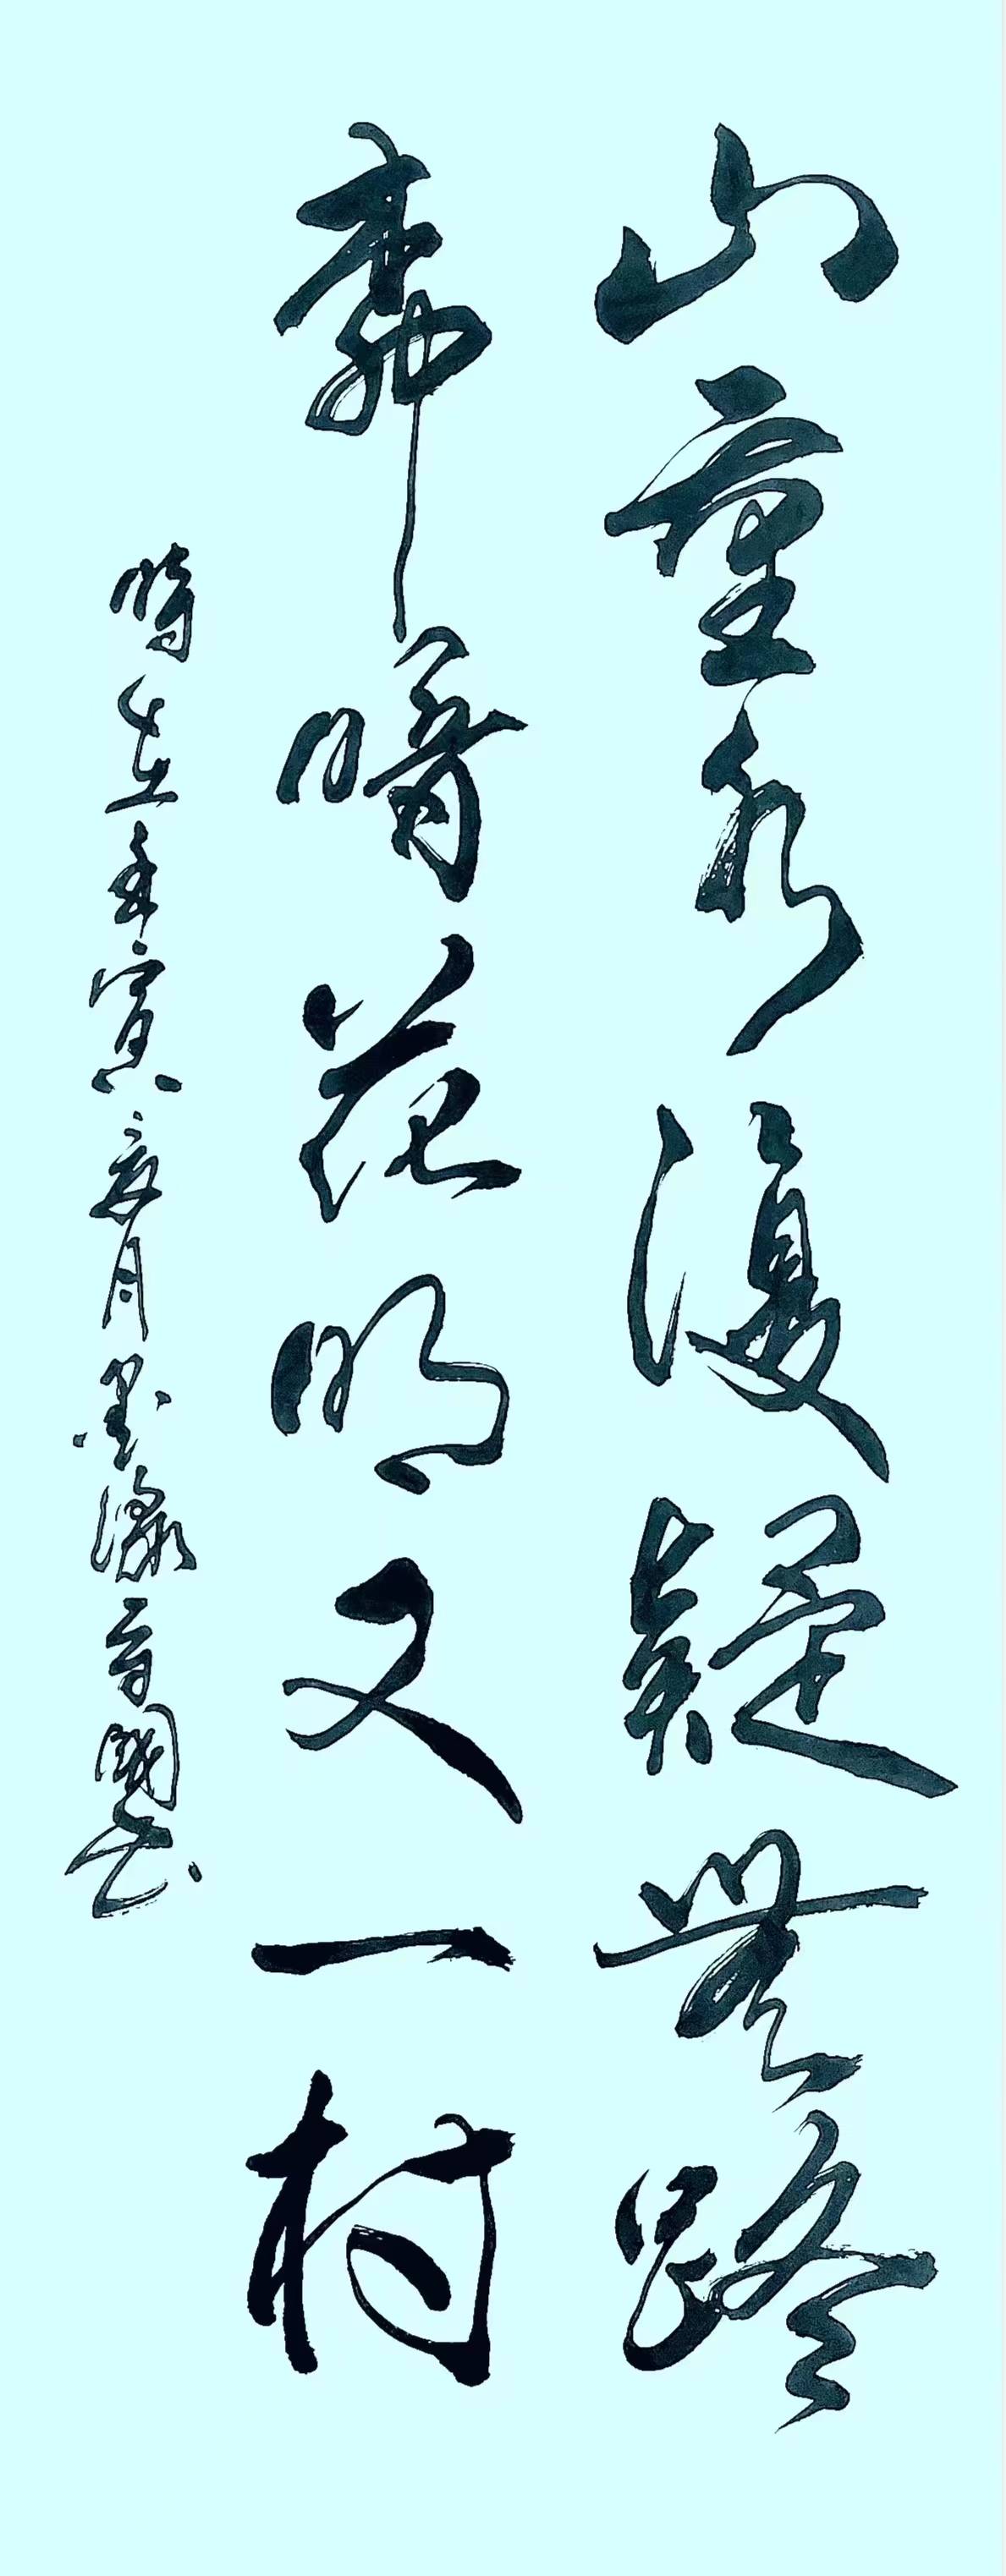 山重水復疑無路
柳暗花明又一村
時在壬寅亥月墨瀛齋國書